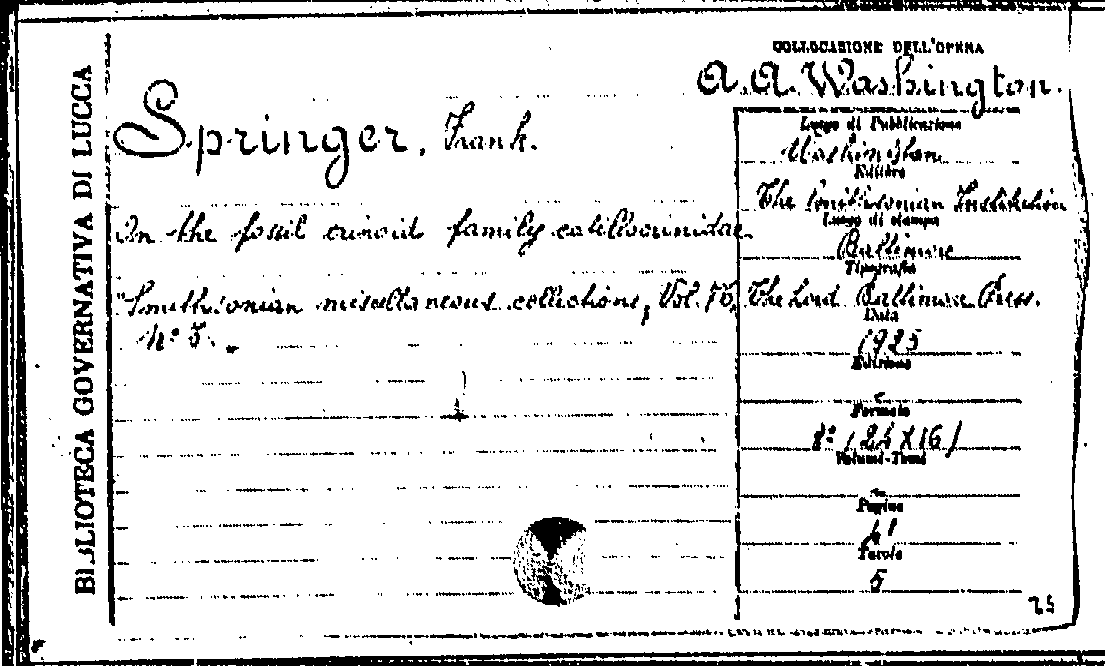 BIBLIOTECA GOVERNATIVA DI LUCCA
Springer, Frank.
On the fossil crinoid family catillocrinidae.
"Smithsonian miscellaneous collections, Vol. 76,
Nº 3. "
COLLOCAZIONE DELL'OPERA
A. A. Washington.
Luogo di Pubblicazione
Washington
Editore
The Smithsonian Institution
Luogo di stampa
Baltimore
Tipografia
The Lord Baltimore Press.
Data
1925
Edizione
Formato
8º (24 X 16)
Volumi-Tomi
Pagine
41
Tavole
5